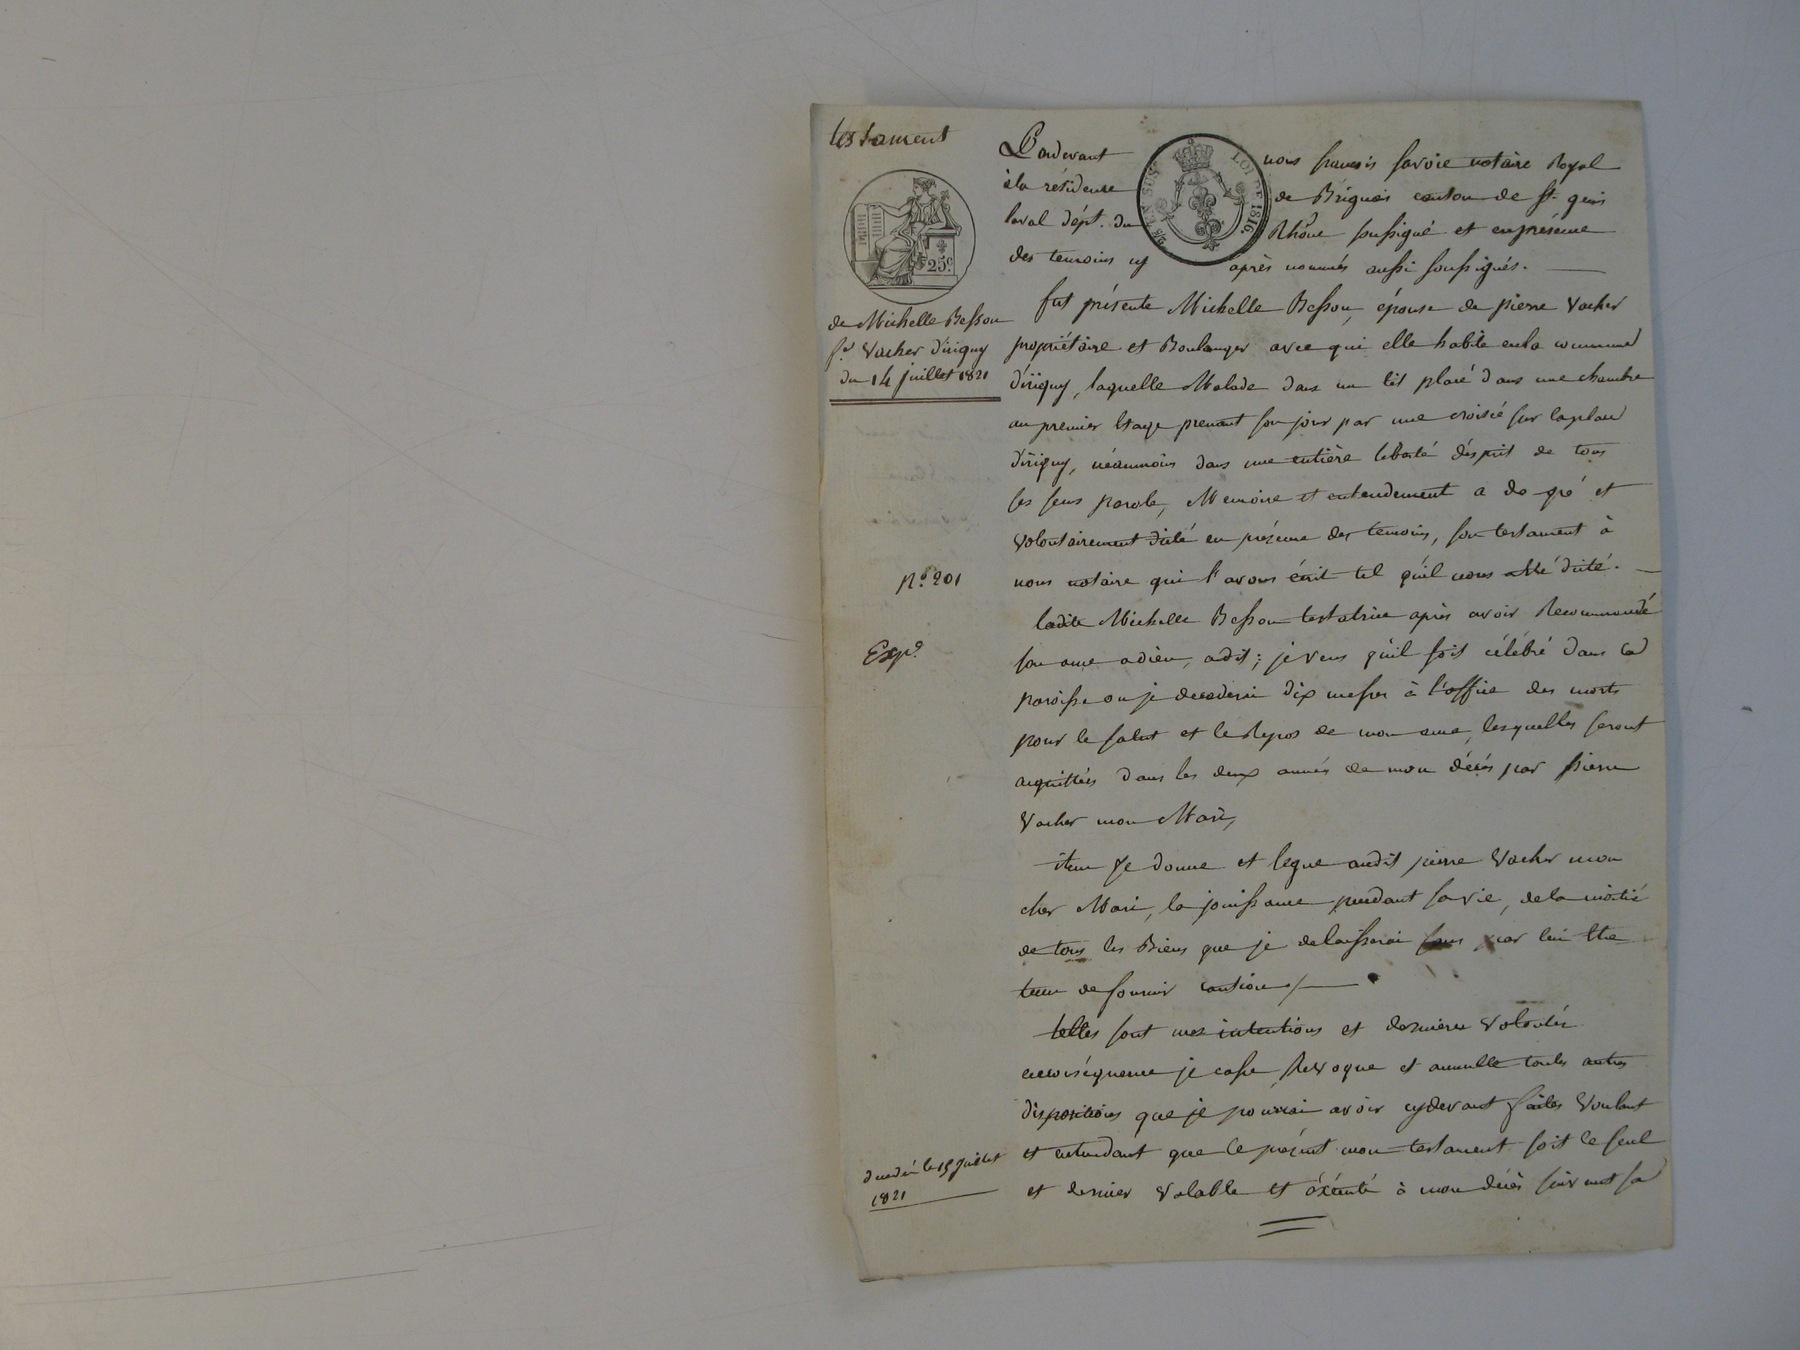 testament
25c
de Michelle Besson
fe. Vacher d'irigny
du 14 juillet 1821
No. 201
Expo.
décédée le 15 juillet
1821
LOI DE 1816.
Pardevant nous françois favoie notaire Royal
à la résidence de Brignais canton de St. genis
laval dépt. du Rhône soussigné et en présence
des temoins cy après nommés aussi soussignés.
fut présente Michelle Besson, épouse de pierre Vacher
propriétaire et Boulanger avec qui elle habite en la commune
d'irigny, laquelle Malade dans un lit placé dans une chambre
au premier étage prenant son jour par une croisée sur la place
d'irigny, néanmoins dans une entière liberté d'ésprit de tous
ses sens parole, Memoire et entendement a de gré et
volontairement dicté en présence des temoins, son testament à
nous notaire qui l'avons écrit tel qu'il nous a été dicté.
ladite Michelle Besson testatrice après avoir Recommandé
son ame adieu, adit; je veux qu'il soit célébré dans la
paroisse ou je decederai dix messes à l'office des morts
pour le salut et le Repos de mon ame, lesquelles seront
acquittées dans les deux années de mon décés par pierre
Vacher mon Mari,
item Je donne et legue audit pierre Vacher mon
cher Mari, la jouissance pendant sa vie, de la moitié
de tous les Biens que je delaisserai sans par lui être
tenu de fournir caution /
telles sont mes intentions et dernieres volontés
enconséquence je casse Revoque et annulle toutes autres
dispositions que je pourrai avoir cydevant faites Voulant
et entendant que le présent mon testament soit le seul
et dernier valable et éxécuté à mon décès suivant sa